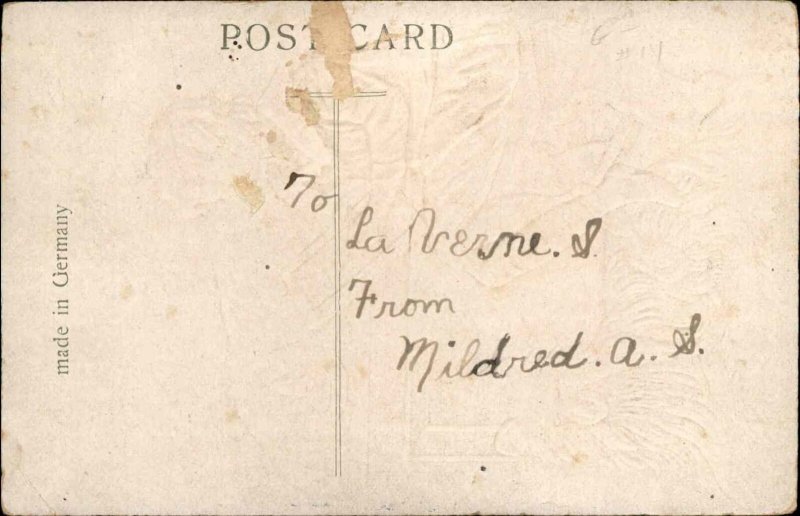 POST CARD
made in Germany
To
La Verne. S.
From
Mildred. A. S.